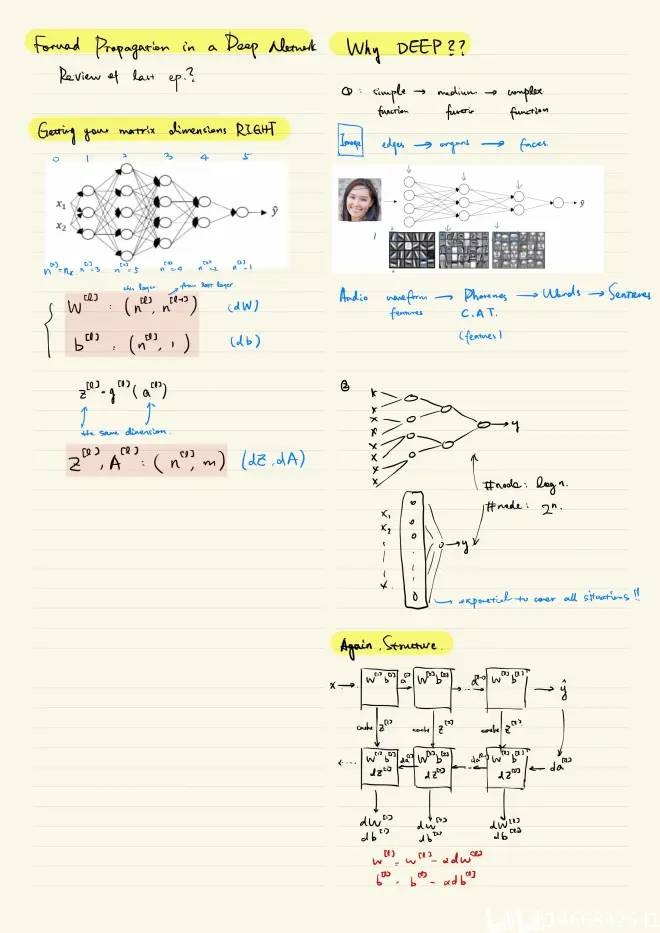 Forward Propagation in a Deep Network
Review of last ep.?
Getting your matrix dimensions RIGHT
0 1 2 3 4 5
x₁
x₂
ŷ
n^[0]=nₓ n^[1]=3 n^[2]=5 n^[3]=4 n^[4]=2 n^[5]=1
this layer from last layer
W^[l] : (n^[l], n^[l-1]) (dW)
b^[l] : (n^[l], 1) (db)
z^[l] = g^[l](a^[l])
the same dimension.
Z^[l], A^[l] : (n^[l], m) (dZ, dA)
Why DEEP??
①: simple → medium → complex
function function function
Image edges → organs → faces
ŷ
Audio waveform → Phonemes → Words → Sentences
features C.A.T.
(features)
②
x
x
x
x
x
x
x
x
y
#node: log n.
#node: 2ⁿ.
x₁
x₂
x
y
exponential to cover all situations!!
Again, Structure.
x → W^[1] b^[1] a^[1] W^[2] b^[2] a^[l-1] W^[l] b^[l] → ŷ
cache z^[1] cache z^[2] cache z^[l]
W^[1] b^[1] da^[1] W^[2] b^[2] da^[l-1] W^[l] b^[l] da^[l]
dz^[1] dz^[2] dz^[l]
dW^[1] dW^[2] dW^[l]
db^[1] db^[2] db^[l]
W^[l] = W^[l] - αdW^[l]
b^[l] = b^[l] - αdb^[l]